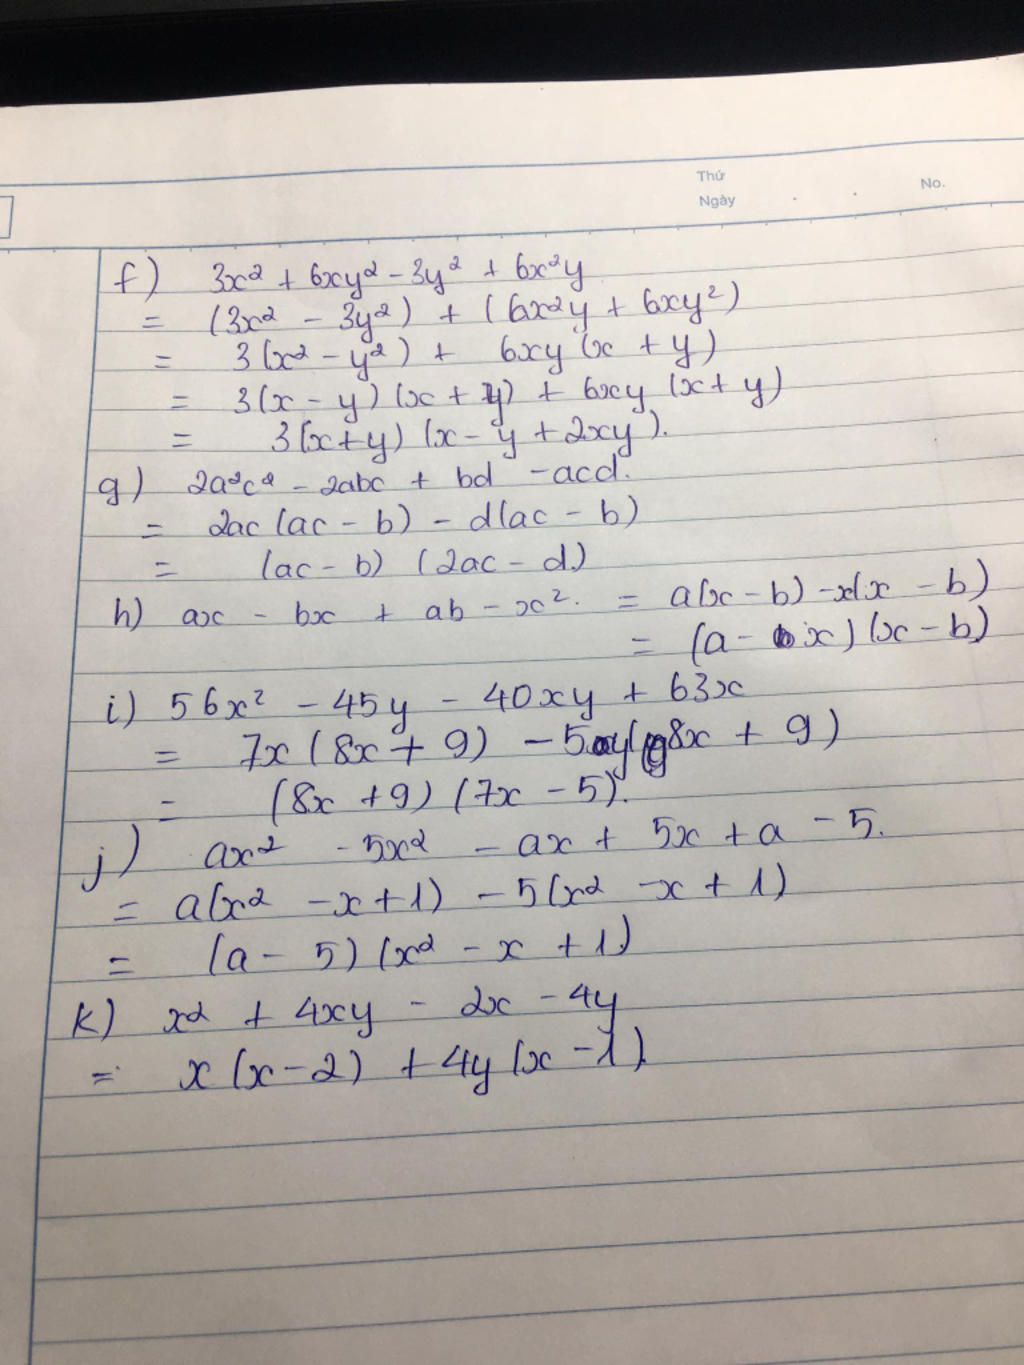 Thứ
Ngày
No.
f) 3x² + 6xy² - 3y² + 6x²y
= (3x² - 3y²) + (6x²y + 6xy²)
= 3(x² - y²) + 6xy (x + y)
= 3(x - y) (x + y) + 6xy (x + y)
= 3(x+y) (x - y + 2xy).
g) 2a²c² - 2abc + bd - acd.
= 2ac (ac - b) - d(ac - b)
= (ac - b) (2ac - d)
h) ax - bx + ab - x². = a(x - b) - x(x - b)
= (a - x) (x - b)
i) 56x² - 45y - 40xy + 63x
= 7x (8x + 9) - 5y(8x + 9)
= (8x + 9) (7x - 5).
j) ax² - 5x² - ax + 5x + a - 5.
= a(x² - x + 1) - 5(x² - x + 1)
= (a - 5) (x² - x + 1)
k) x² + 4xy - 2x - 4y
= x (x - 2) + 4y (x - 1)